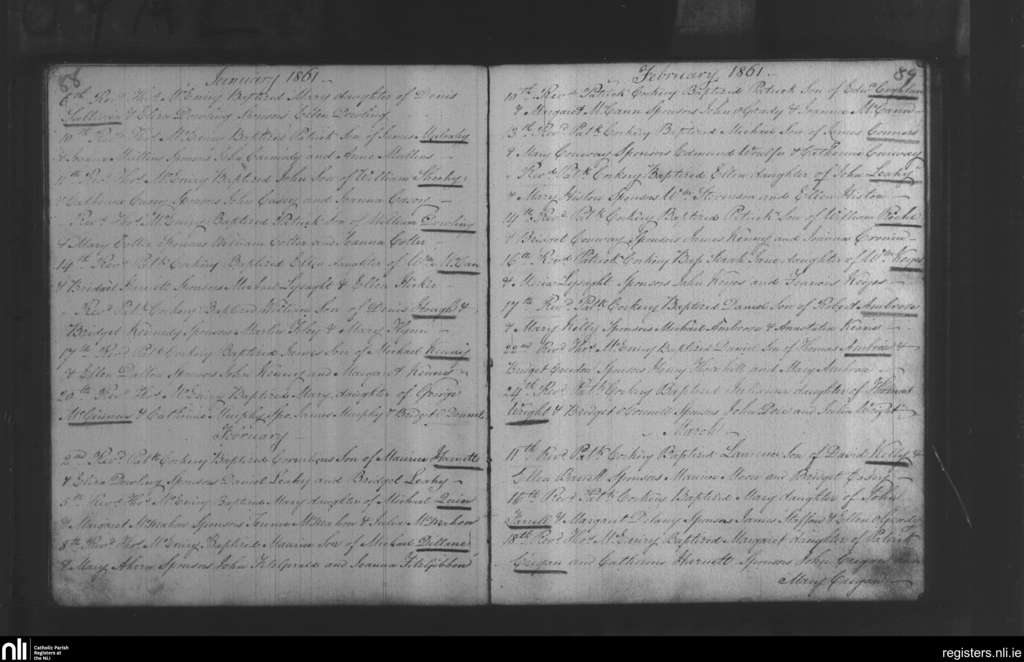 88
January 1861
6th Revd Thos McEniry Baptized Mary daughter of Denis
Sullivan & Eliza Dowling Sponsors Ellen Dowling
10th Revd Thos McEniry Baptized Patrick Son of James Mulcahy
& Joana Mullins Sponsors John Carmody and Anne Mullins
11th Revd Thos McEniry Baptized John Son of William Sheehy
& Catherine Casey Sponsors John Casey and Joanna Casey
" Revd Thos McEniry Baptized Patrick Son of William Dowling
& Mary Cotter Sponsors William Cotter and Joanna Cotter
14th Revd Patk Corkery Baptized Ellen daughter of Wm
& Bridget Sponsors Lysaght & Ellen Hickie
" Revd Patk Corkery Baptized William Son of Denis Hough &
Bridget Kennedy Sponsors Martin Foley & Mary Flynn
17th Revd Patk Corkery Baptized James Son of Michael Kenny
& Ellen Dalton Sponsors John Kenny and Margaret Kenny
20th Revd Thos McEniry Baptized Mary daughter of George
& Catherine Murphy Spo James Murphy & Bridget
February
2nd Revd Patk Corkery Baptized Cornelious Son of Maurice Harnette
& Eliza Dowling Sponsors Daniel Leahy and Bridget Leahy
5th Revd Thos McEniry Baptized Mary daughter of Michael
& Margaret McMahon Sponsors Thomas McMahon & Julia McMahon
8th Revd Thos McEniry Baptized Maurice Son of Michael Dillane
& Mary Ahern Sponsors John FitzGerald and Joanna FitzGibbon
89
February 1861
10th Revd Patrick Corkery Baptized Patrick Son of Edmd
& Margaret McCann Sponsors John OGrady & Joanna McCann
13th Revd Patk Corkery Baptized Michael Son of James Connors
& Mary Conway Sponsors Edmund Woulfe & Catherine Conway
" Revd Patk Corkery Baptized Ellen daughter of John Leahy
& Mary Histon Sponsors Wm Stevenson and Ellen Histon
14th Revd Patk Corkery Baptized Patrick Son of William Roche
& Bridget Conway Sponsors James Kenny and Joanna Cronin
16th Revd Patrick Corkery Bap Sarah Jane daughter of Wm Keays
& Maria Lysaght Sponsors John Keays and Francis Keays
17th Revd Patk Corkery Baptized Daniel Son of Robert Ambrose
& Mary Kelly Sponsors Michael Ambrose &
22nd Revd Thos McEniry Baptized Daniel Son of Thomas Ambrose &
Bridget Sponsors Henry Thornhill and Mary Ambrose
24th Revd Patk Corkery Baptized daughter of Thomas
Wright & Bridget OConnell Sponsors John Dore and Julia Wright
March
11th Revd Patk Corkery Baptized Laurence Son of David Kelly &
Ellen Barrett Sponsors Maurice Moore and Bridget
16th Revd Patk Corkery Baptized Mary daughter of John
Farrell & Margaret Delany Sponsors James Steffens & Ellen OGrady
18th Revd Thos McEniry Baptized Margaret daughter of Patrick
Guigan and Catherine Harnett Sponsors John Guigan and
Mary Guigan
nli
Catholic Parish
Registers at
the NLI
registers.nli.ie